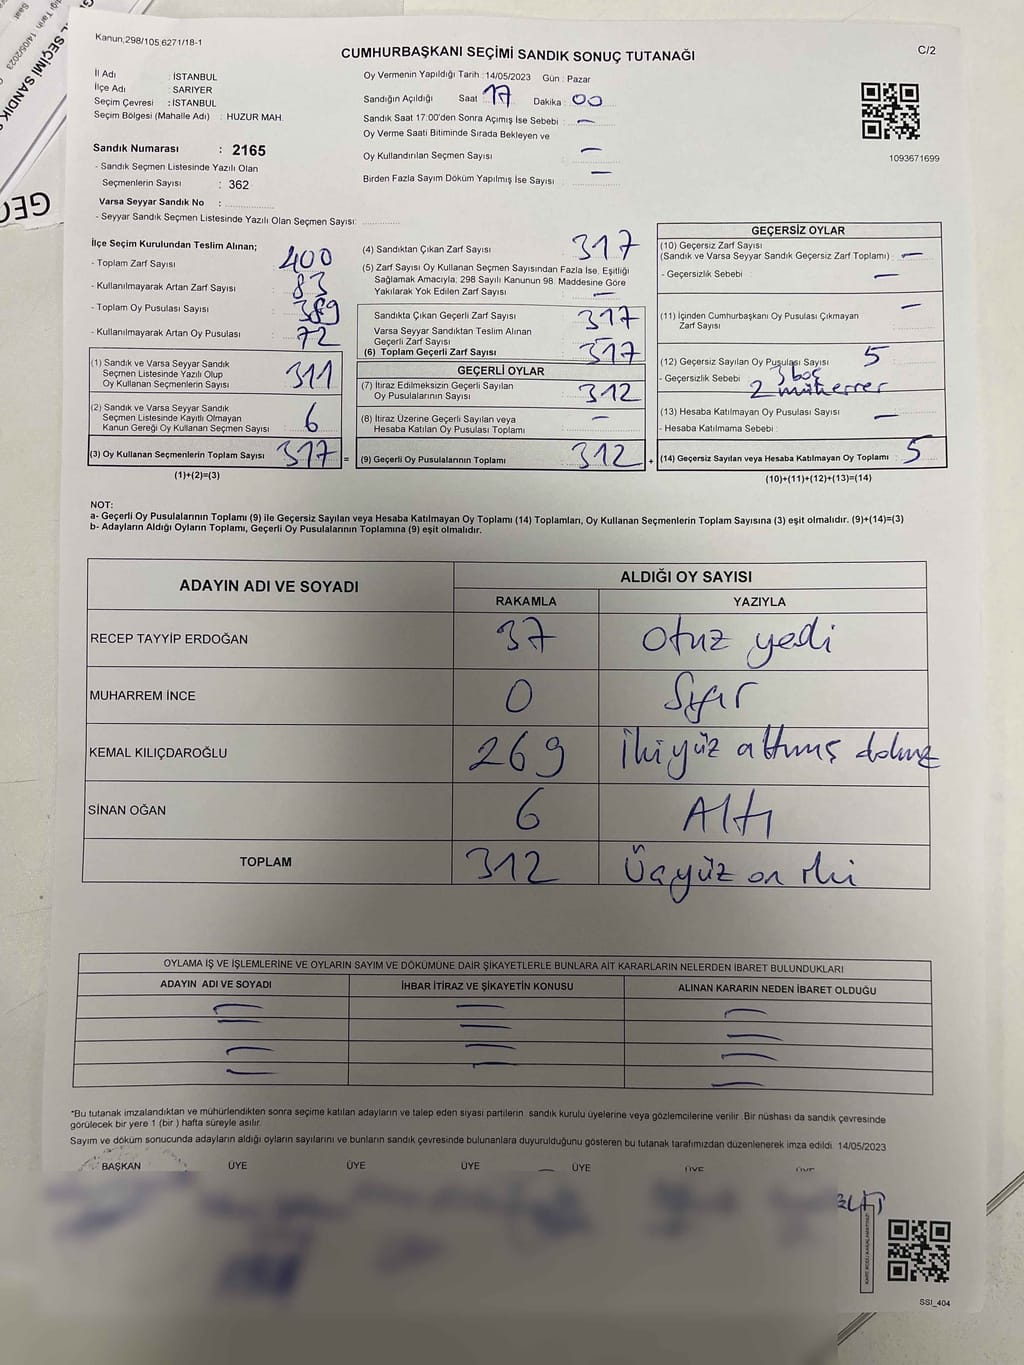 Kanun,298/105,6271/18-1
CUMHURBAŞKANI SEÇİMİ SANDIK SONUÇ TUTANAĞI
C/2
İl Adı : İSTANBUL
İlçe Adı : SARIYER
Seçim Çevresi : İSTANBUL
Seçim Bölgesi (Mahalle Adı) : HUZUR MAH.
Sandık Numarası : 2165
- Sandık Seçmen Listesinde Yazılı Olan
Seçmenlerin Sayısı : 362
Varsa Seyyar Sandık No :
- Seyyar Sandık Seçmen Listesinde Yazılı Olan Seçmen Sayısı:
Oy Vermenin Yapıldığı Tarih : 14/05/2023 Gün : Pazar
Sandığın Açıldığı Saat 17 Dakika 00
Sandık Saat 17:00'den Sonra Açımış İse Sebebi : —
Oy Verme Saati Bitiminde Sırada Bekleyen ve
Oy Kullandırılan Seçmen Sayısı : —
Birden Fazla Sayım Döküm Yapılmış İse Sayısı : —
1093671699
İlçe Seçim Kurulundan Teslim Alınan;
- Toplam Zarf Sayısı : 400
- Kullanılmayarak Artan Zarf Sayısı : 83
- Toplam Oy Pusulası Sayısı : 389
- Kullanılmayarak Artan Oy Pusulası : 72
(1) Sandık ve Varsa Seyyar Sandık
Seçmen Listesinde Yazılı Olup
Oy Kullanan Seçmenlerin Sayısı : 311
(2) Sandık ve Varsa Seyyar Sandık
Seçmen Listesinde Kayıtlı Olmayan
Kanun Gereği Oy Kullanan Seçmen Sayısı : 6
(3) Oy Kullanan Seçmenlerin Toplam Sayısı : 317 =
(1)+(2)=(3)
(4) Sandıktan Çıkan Zarf Sayısı : 317
(5) Zarf Sayısı Oy Kullanan Seçmen Sayısından Fazla İse, Eşitliği
Sağlamak Amacıyla; 298 Sayılı Kanunun 98. Maddesine Göre
Yakılarak Yok Edilen Zarf Sayısı : —
Sandıkta Çıkan Geçerli Zarf Sayısı : 317
Varsa Seyyar Sandıktan Teslim Alınan
Geçerli Zarf Sayısı :
(6) Toplam Geçerli Zarf Sayısı : 317
GEÇERLİ OYLAR
(7) İtiraz Edilmeksizin Geçerli Sayılan
Oy Pusulalarının Sayısı : 312
(8) İtiraz Üzerine Geçerli Sayılan veya
Hesaba Katılan Oy Pusulası Toplamı : —
(9) Geçerli Oy Pusulalarının Toplamı : 312 +
GEÇERSİZ OYLAR
(10) Geçersiz Zarf Sayısı
(Sandık ve Varsa Seyyar Sandık Geçersiz Zarf Toplamı) : —
- Geçersizlik Sebebi : —
(11) İçinden Cumhurbaşkanı Oy Pusulası Çıkmayan
Zarf Sayısı : —
(12) Geçersiz Sayılan Oy Pusulası Sayısı : 5
- Geçersizlik Sebebi : 3 boş
2 mükerrer
(13) Hesaba Katılmayan Oy Pusulası Sayısı : —
- Hesaba Katılmama Sebebi :
(14) Geçersiz Sayılan veya Hesaba Katılmayan Oy Toplamı : 5
(10)+(11)+(12)+(13)=(14)
NOT:
a- Geçerli Oy Pusulalarının Toplamı (9) ile Geçersiz Sayılan veya Hesaba Katılmayan Oy Toplamı (14) Toplamları, Oy Kullanan Seçmenlerin Toplam Sayısına (3) eşit olmalıdır. (9)+(14)=(3)
b- Adayların Aldığı Oyların Toplamı, Geçerli Oy Pusulalarının Toplamına (9) eşit olmalıdır.
ADAYIN ADI VE SOYADI
ALDIĞI OY SAYISI
RAKAMLA YAZIYLA
RECEP TAYYİP ERDOĞAN 37 Otuz yedi
MUHARREM İNCE 0 Sıfır
KEMAL KILIÇDAROĞLU 269 İkiyüz altmış dokuz
SİNAN OĞAN 6 Altı
TOPLAM 312 Üçyüz on iki
OYLAMA İŞ VE İŞLEMLERİNE VE OYLARIN SAYIM VE DÖKÜMÜNE DAİR ŞİKAYETLERLE BUNLARA AİT KARARLARIN NELERDEN İBARET BULUNDUKLARI
ADAYIN ADI VE SOYADI İHBAR İTİRAZ VE ŞİKAYETİN KONUSU ALINAN KARARIN NEDEN İBARET OLDUĞU
*Bu tutanak imzalandıktan ve mühürlendikten sonra seçime katılan adayların ve talep eden siyasi partilerin sandık kurulu üyelerine veya gözlemcilerine verilir. Bir nüshası da sandık çevresinde
görülecek bir yere 1 (bir ) hafta süreyle asılır.
Sayım ve döküm sonucunda adayların aldığı oyların sayılarını ve bunların sandık çevresinde bulunanlara duyurulduğunu gösteren bu tutanak tarafımızdan düzenlenerek imza edildi. 14/05/2023
BAŞKAN ÜYE ÜYE ÜYE ÜYE ÜYE ÜYE
SSI_404